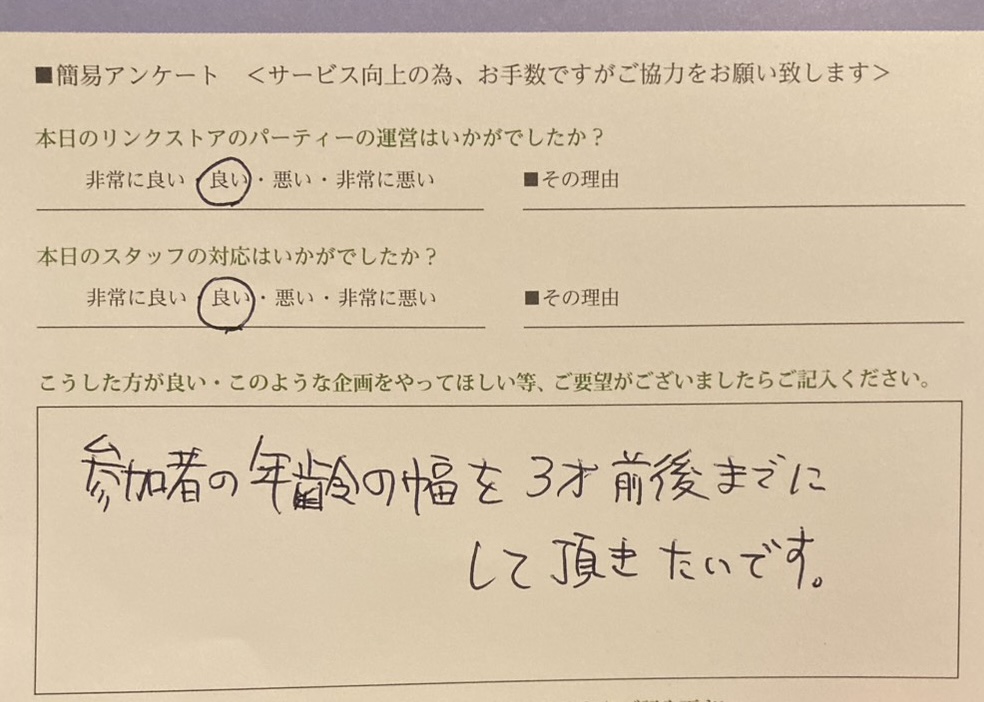 ■簡易アンケート ＜サービス向上の為、お手数ですがご協力をお願い致します＞
本日のリンクストアのパーティーの運営はいかがでしたか？
非常に良い・良い・悪い・非常に悪い ■その理由
本日のスタッフの対応はいかがでしたか？
非常に良い・良い・悪い・非常に悪い ■その理由
こうした方が良い・このような企画をやってほしい等、ご要望がございましたらご記入ください。
参加者の年齢の幅を3才前後までに
して頂きたいです。